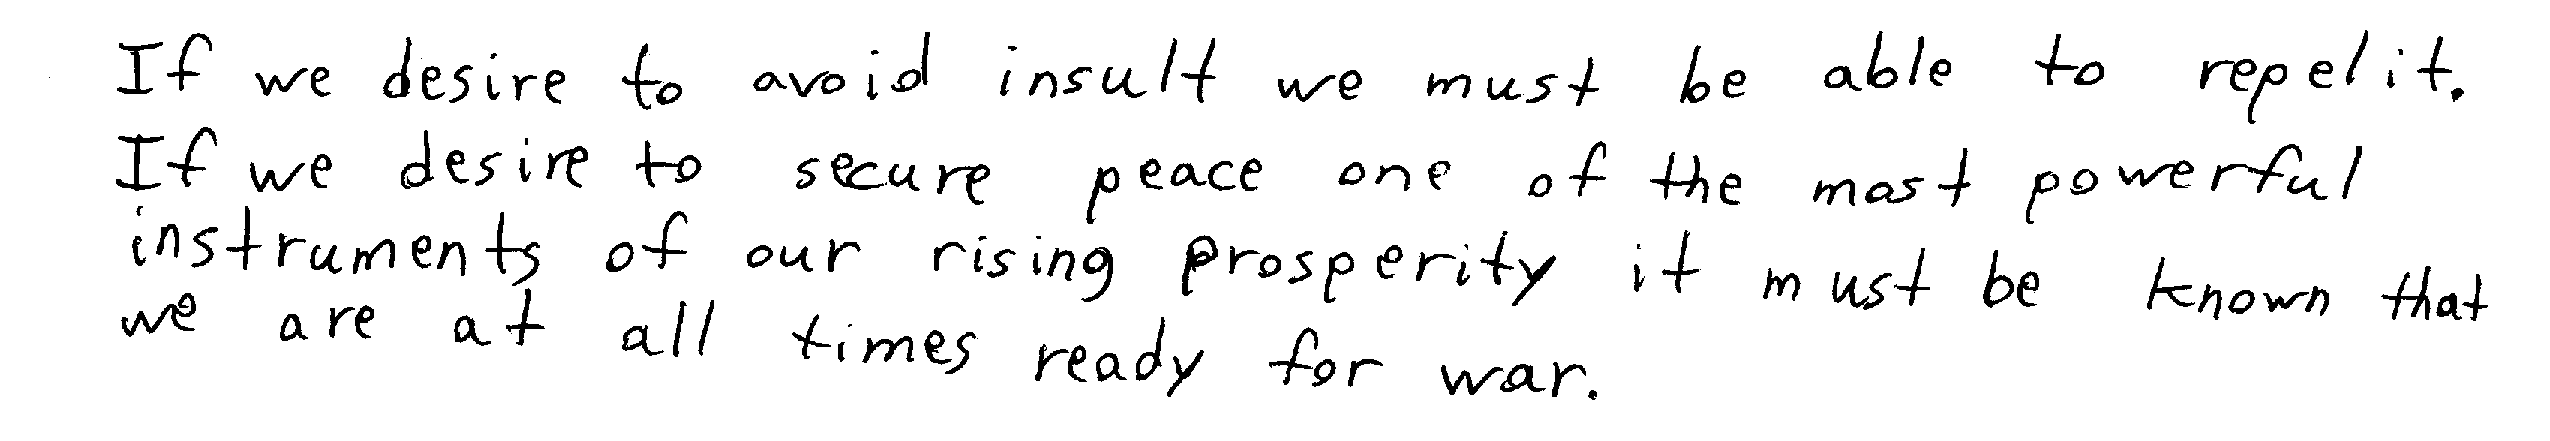 If we desire to avoid insult we must be able to repel it.
If we desire to secure peace one of the most powerful
instruments of our rising prosperity it must be known that
we are at all times ready for war.